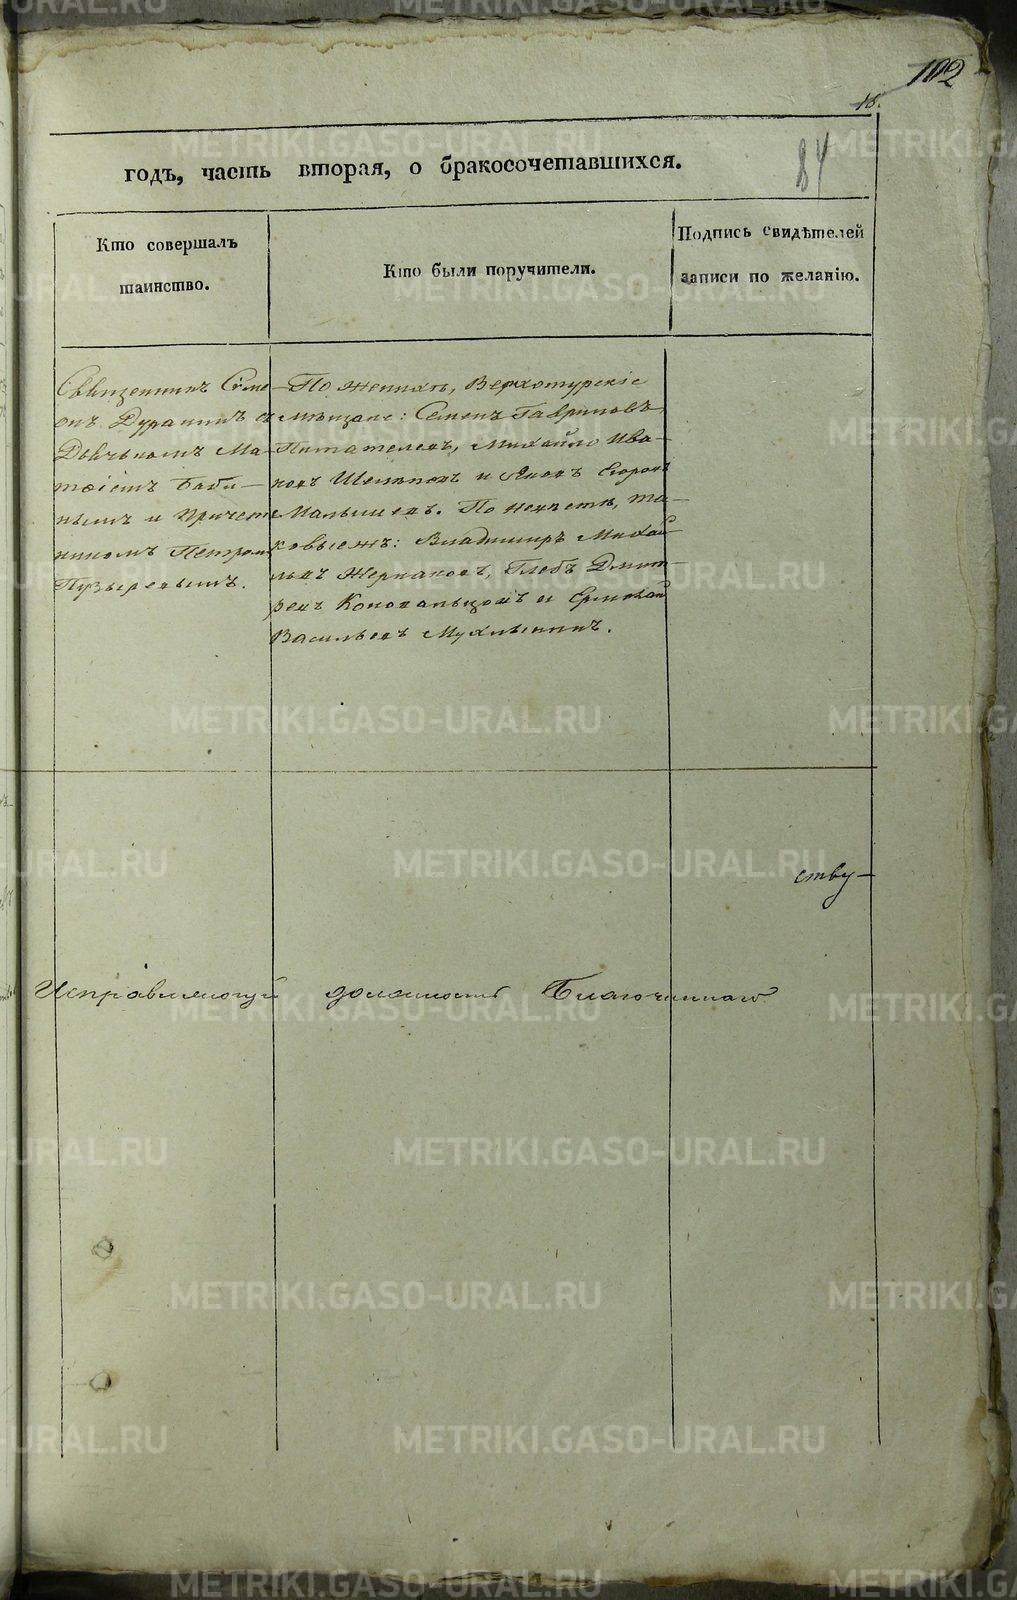 102
18.
84
годъ, часть вторая, о бракосочетавшихся.
Кто совершалъ
таинство.
Кто были поручители.
Подпись свидѣтелей
записи по желанію.
Священникъ Симе-
онъ Дуранинъ съ
Дьячькомъ Ма-
тѳіемъ Баби-
нымъ и Причет
никомъ Петромъ
Пузыревымъ.
По женихѣ, Верхотурскіе
мѣщане: Семенъ Гавриловъ
Питателевъ, Михайло Ива-
новъ и Яковъ Егоровъ
Малышевъ. По невѣстѣ, та-
ковыежъ: Владимиръ Михай-
ловъ Жернаковъ, Глебъ Дмит-
ревъ Коновальцовъ и Ермолай
Васильевъ Мухлынинъ.
ству-
Исправляющій должность Благочиннаго
METRIKI.GASO-URAL.RU